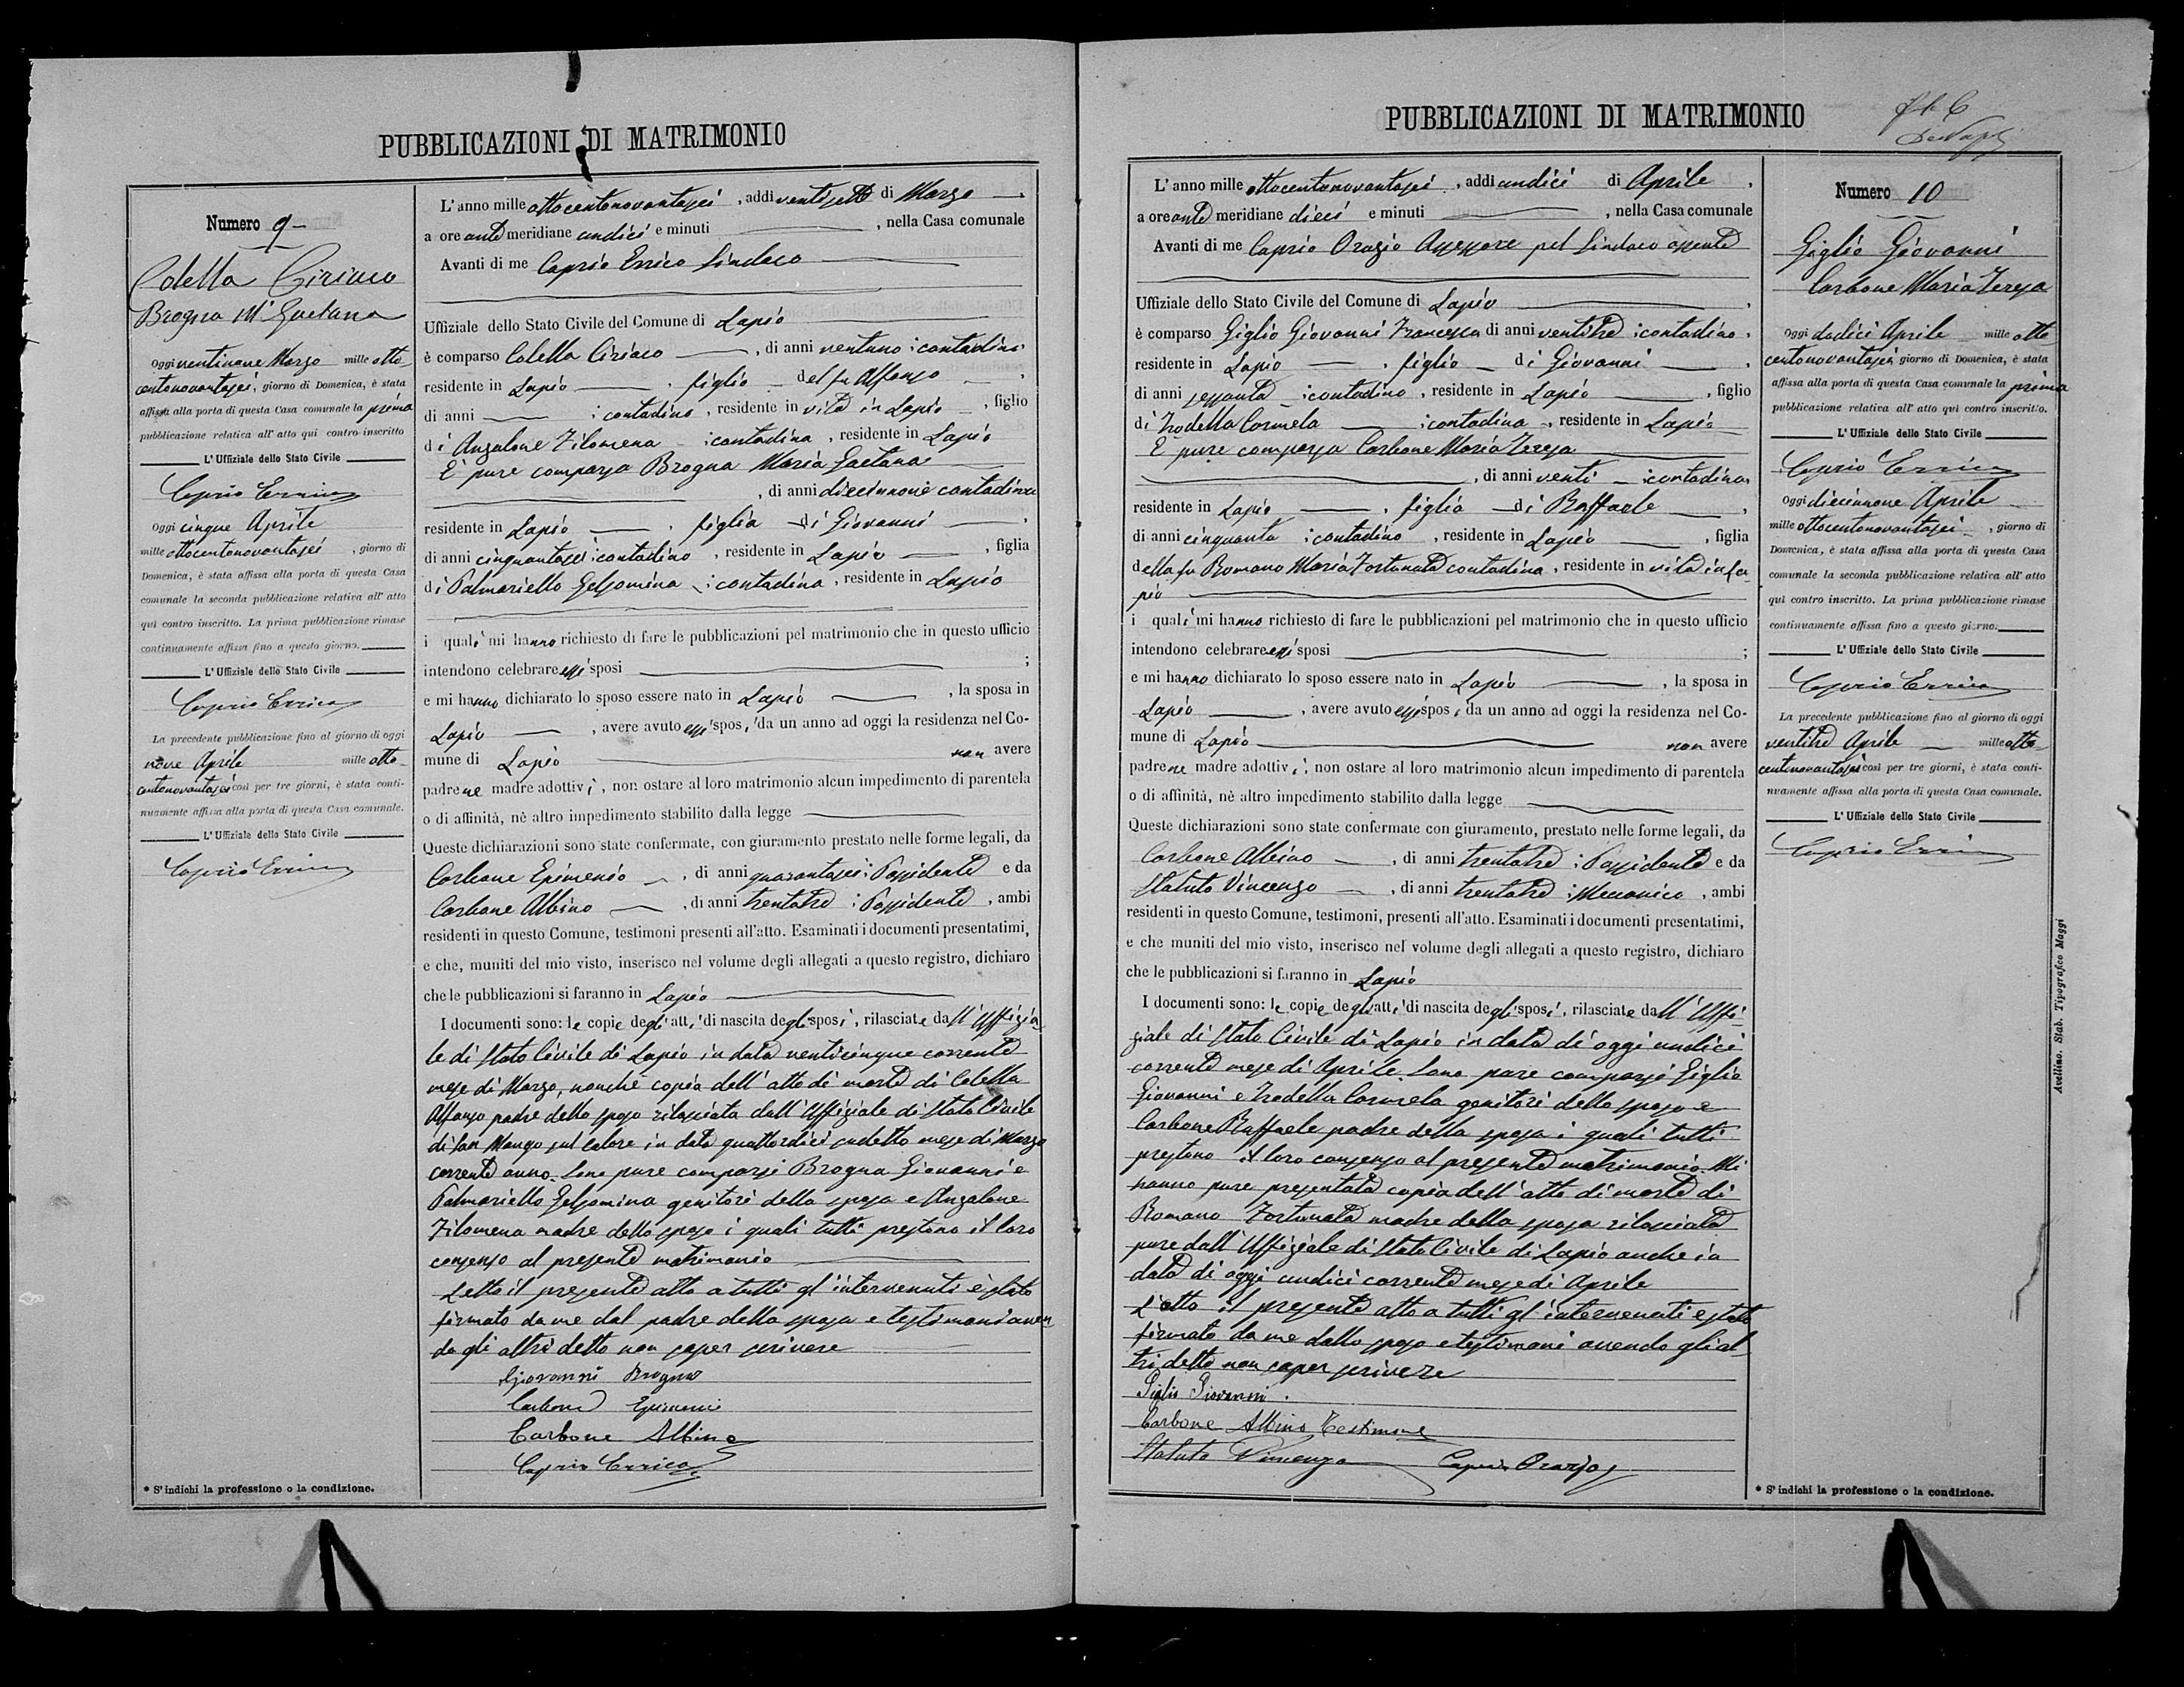 PUBBLICAZIONI DI MATRIMONIO
Numero 9
Colella Ciriaco
Brogna Mª Gaetana
Oggi ventinove Marzo mille otto
centonovantasei, giorno di Domenica, è stata
affissa alla porta di questa Casa comunale la prima
pubblicazione relativa all' atto qui contro inscritto
L' Uffiziale dello Stato Civile
Caprio Errico
Oggi cinque Aprile
mille ottocentonovantasei, giorno di
Domenica, è stata affissa alla porta di questa Casa
comunale la seconda pubblicazione relativa all' atto
qui contro inscritto. La prima pubblicazione rimase
continuamente affissa fino a questo giorno.
L' Uffiziale dello Stato Civile
Caprio Errico
La precedente pubblicazione fino al giorno di oggi
nove Aprile mille otto
centonovantasei così per tre giorni, è stata conti-
nuamente affissa alla porta di questa Casa comunale.
L' Uffiziale dello Stato Civile
Caprio Errico
* S' indichi la professione o la condizione.
L' anno mille ottocentonovantasei, addi ventisette di Marzo,
a ore ante meridiane undici e minuti , nella Casa comunale
Avanti di me Caprio Errico Sindaco
Uffiziale dello Stato Civile del Comune di Lapio
è comparso Colella Ciriaco, di anni ventuno contadino
residente in Lapio, figlio del fu Alfonso,
di anni , contadino, residente in vita in Lapio, figlio
di Angalone Filomena contadina, residente in Lapio
È pure comparsa Brogna Maria Gaetana
, di anni diecinnove contadina
residente in Lapio, figlia di Giovanni,
di anni cinquantasei contadino, residente in Lapio, figlia
di Palmariello Gelsomina contadina, residente in Lapio
i quali mi hanno richiesto di fare le pubblicazioni pel matrimonio che in questo ufficio
intendono celebrare essi sposi ;
e mi hanno dichiarato lo sposo essere nato in Lapio, la sposa in
Lapio, avere avuto essi sposi, da un anno ad oggi la residenza nel Co-
mune di Lapio non avere
padre ne madre adottivi, non ostare al loro matrimonio alcun impedimento di parentela
o di affinità, nè altro impedimento stabilito dalla legge
Queste dichiarazioni sono state confermate, con giuramento prestato nelle forme legali, da
Carbone Epimenio, di anni quarantasei Possidente e da
Carbone Albino, di anni trentatre Possidente, ambi
residenti in questo Comune, testimoni presenti all'atto. Esaminati i documenti presentatimi,
e che, muniti del mio visto, inserisco nel volume degli allegati a questo registro, dichiaro
che le pubblicazioni si faranno in Lapio
I documenti sono: le copie degli atti di nascita degli sposi, rilasciate dall' Uffizia
le di Stato Civile di Lapio in data venticinque corrente
mese di Marzo, nonchè copia dell' atto di morte di Colella
Alfonso padre dello sposo rilasciata dall' Uffiziale di Stato Civile
di San Mango sul Calore in data quattordici sudetto mese di Marzo
corrente anno. Sono pure comparsi Brogna Giovanni e
Palmariello Gelsomina genitori della sposa e Angalone
Filomena madre dello sposo i quali tutti prestano il loro
consenso al presente matrimonio
Letto il presente atto a tutti gl' intervenuti è stato
firmato da me dal padre della sposa e testimoni aven
do gli altri detto non saper scrivere
Giovanni Brogna
Carbone Epimenio
Carbone Albino
Caprio Errico
PUBBLICAZIONI DI MATRIMONIO
L' anno mille ottocentonovantasei, addi undici di Aprile,
a ore ante meridiane dieci e minuti , nella Casa comunale
Avanti di me Caprio Orazio Assessore pel Sindaco assente
Uffiziale dello Stato Civile del Comune di Lapio,
è comparso Giglio Giovanni Francesca di anni ventitre contadino,
residente in Lapio, figlio di Giovanni,
di anni sessanta contadino, residente in Lapio, figlio
di Trodella Carmela contadina, residente in Lapio
È pure comparsa Carbone Maria Teresa
, di anni venti contadina
residente in Lapio, figlia di Raffaele,
di anni cinquanta contadino, residente in Lapio, figlia
della fu Romano Maria Fortunata contadina, residente in vita in La
pio
i quali mi hanno richiesto di fare le pubblicazioni pel matrimonio che in questo ufficio
intendono celebrare essi sposi ;
e mi hanno dichiarato lo sposo essere nato in Lapio, la sposa in
Lapio, avere avuto essi sposi, da un anno ad oggi la residenza nel Co-
mune di Lapio non avere
padre ne madre adottivi, non ostare al loro matrimonio alcun impedimento di parentela
o di affinità, nè altro impedimento stabilito dalla legge
Queste dichiarazioni sono state confermate con giuramento, prestato nelle forme legali, da
Carbone Albino, di anni trentatre Possidente e da
Statuto Vincenzo, di anni trentatre Meccanico, ambi
residenti in questo Comune, testimoni, presenti all'atto. Esaminati i documenti presentatimi,
e che muniti del mio visto, inserisco nel volume degli allegati a questo registro, dichiaro
che le pubblicazioni si faranno in Lapio
I documenti sono: le copie degli atti di nascita degli sposi, rilasciate dall' Uffi-
ziale di Stato Civile di Lapio in data di oggi undici
corrente mese di Aprile. Sono pure comparsi Giglio
Giovanni e Trodella Carmela genitori dello sposo e
Carbone Raffaele padre della sposa i quali tutti
prestano il loro consenso al presente matrimonio. Mi
hanno pure presentata copia dell' atto di morte di
Romano Fortunata madre della sposa rilasciata
pure dall' Uffiziale di Stato Civile di Lapio anche in
data di oggi undici corrente mese di Aprile
Letto il presente atto a tutti gl' intervenuti e stato
firmato da me dallo sposo e testimoni avendo gli al
tri detto non saper scrivere
Giglio Giovanni.
Carbone Albino Testimone
Statuto Vincenzo Caprio Orazio
Numero 10
Giglio Giovanni
Carbone Maria Teresa
Oggi dodici Aprile mille otto
centonovantasei, giorno di Domenica, è stata
affissa alla porta di questa Casa comunale la prima
pubblicazione relativa all' atto qui contro inscritto.
L' Uffiziale dello Stato Civile
Caprio Errico
Oggi diecinnove Aprile
mille ottocentonovantasei, giorno di
Domenica, è stata affissa alla porta di questa Casa
comunale la seconda pubblicazione relativa all' atto
qui contro inscritto. La prima pubblicazione rimase
continuamente affissa fino a questo giorno.
L' Uffiziale dello Stato Civile
Caprio Errico
La precedente pubblicazione fino al giorno di oggi
ventitre Aprile mille otto
centonovantasei così per tre giorni, è stata conti-
nuamente affissa alla porta di questa Casa comunale.
L' Uffiziale dello Stato Civile
Caprio Errico
* S' indichi la professione o la condizione.
Avellino. Stab. Tipografico Maggi